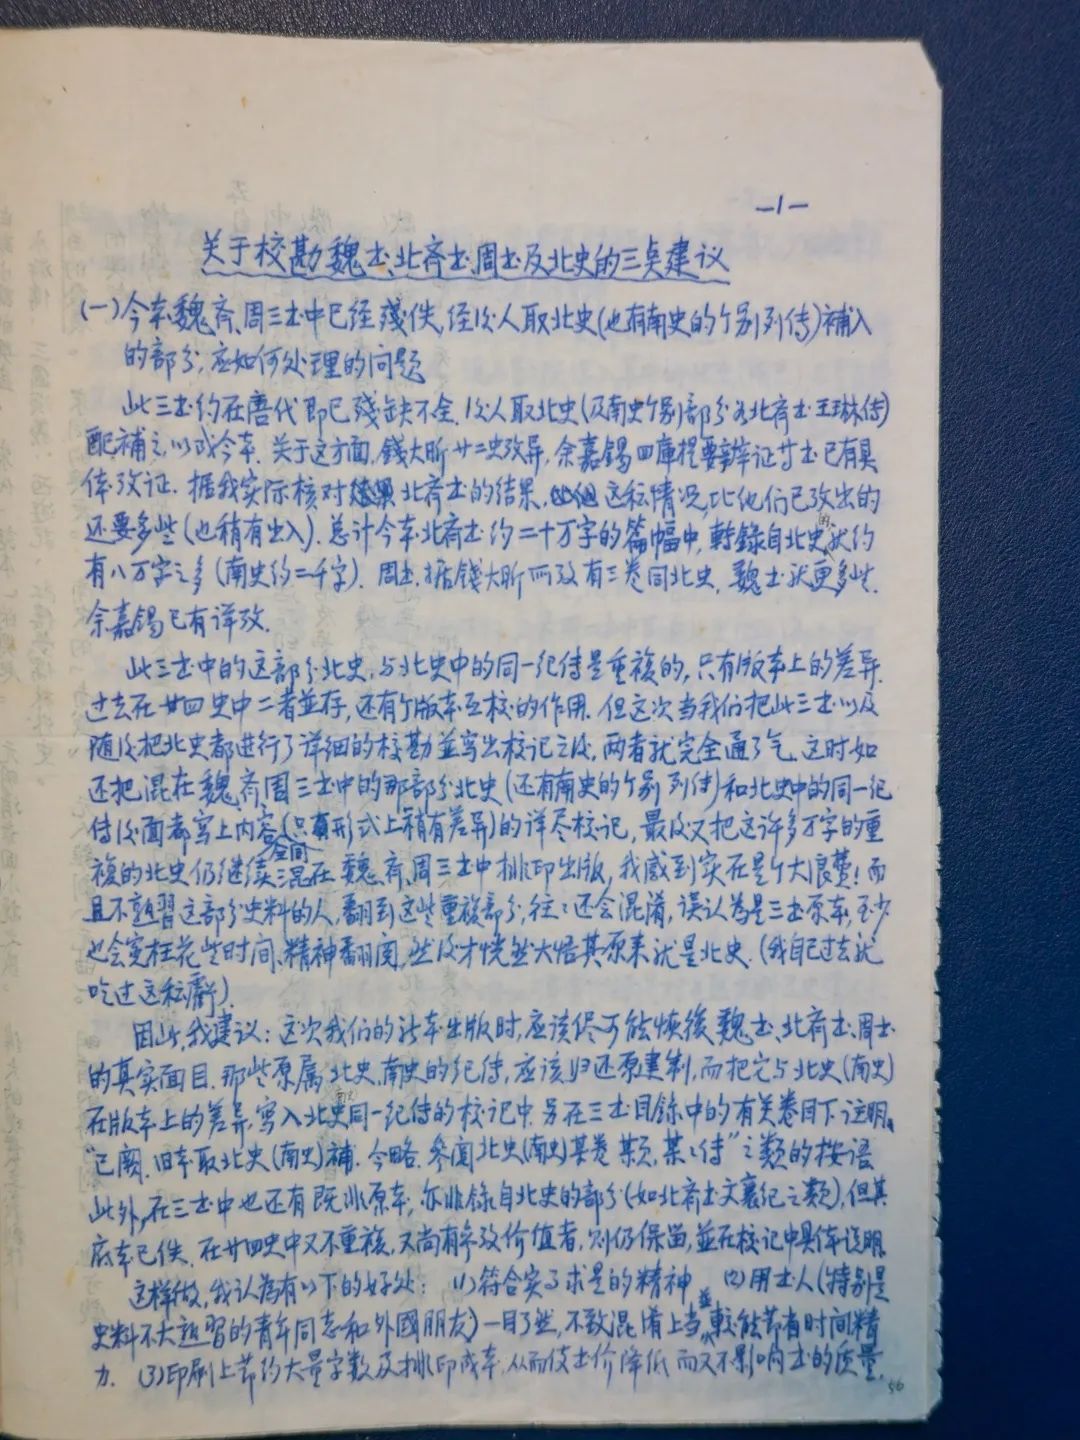 —1—
关于校勘魏书、北斉书、周书及北史的三点建议
(一)今本魏、斉、周三书中已经残佚,经后人取北史(也有南史的个别列传)补入
的部分,应如何处理的问题
此三书约在唐代即已残缺不全.后人取北史(及南史个别部分如北斉书王琳传)
配補之,以成今本.关于这方面,錢大昕廿二史攷异,余嘉锡四庫提要辩证廿书已有具
体攷证.据我实际核对北斉书的结果,这种情况,比他们已攷出的
还要多些(也稍有出入).总计今本北斉书约二十万字的篇幅中,転錄自北史的就约
有八万字之多(南史约二千字).周书,据钱大昕所攷有三卷同北史,魏书就更多些.
余嘉锡已有详攷.
此三书中的这部分北史,与北史中的同一纪传是重複的,只有版本上的差异.
过去在廿四史中二者並存,还有个版本互校的作用.但这次当我们把此三书以及
随后把北史都进行了详细的校勘並写出校记之后,两者就完全通了气.这时如
还把混在魏、斉、周三书中的那部分北史(还有南史的个别列传)和北史中的同一纪
传后面都写上内容全同(只有形式上稍有差异)的详尽校记,最后又把这许多万字的重
複的北史仍继续混在魏、斉、周三书中排印出版,我感到实在是个大浪费!而
且不熟習这部分史料的人,翻到这些重複部分,往々还会混淆,误认为是三书原本,至少
也会冤枉花些时间、精神翻阅,然后才恍然大悟其原来就是北史.(我自己过去就
吃过这种虧).
因此,我建议:这次我们的新本出版时,应该尽可能恢復魏书、北斉书、周书
的真实面目.那些原属北史、南史的纪传,应该归还原建制,而把它与北史(南史)
在版本上的差异,写入北史南史同一纪传的校记中.另在三书目錄中的有关卷目下注明,
“已阙.旧本取北史(南史)補.今略.参阅北史(南史)某卷某頁,某々传”之类的按语.
此外,在三书中也还有既非原本,亦非錄自北史的部分(如北斉书文襄纪之类),但其
底本已佚.在廿四史中又不重複,又尚有参攷价值者,则仍保留,並在校记中具体说明.
这样做,我认为有以下的好处: (1)符合实事求是的精神 (2)用书人(特别是
史料不大熟習的青年同志和外國朋友)一目了然,不致混淆上当,並較能节省时间精
力. (3)印刷上节约大量字数及排印成本,从而使书价降低而又不影响书的质量.
56